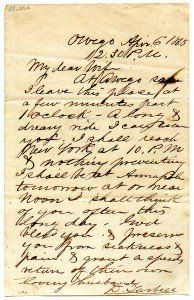 Owego Apr 6" 1865
12.30 P.M.
My dear Wife
At Owego safe
I leave this place at
a few minutes past
1 oclock - A long &
dreary ride I cast from
you I shall reach
New York at 10. P.M.
& nothing preventing
I shall be at Annapolis
tomorrow at or near
Noon I shall think
of you often this
long day - God
bless you & preserve
you from sickness &
pain & grant a speedy
return of thine own
loving husband